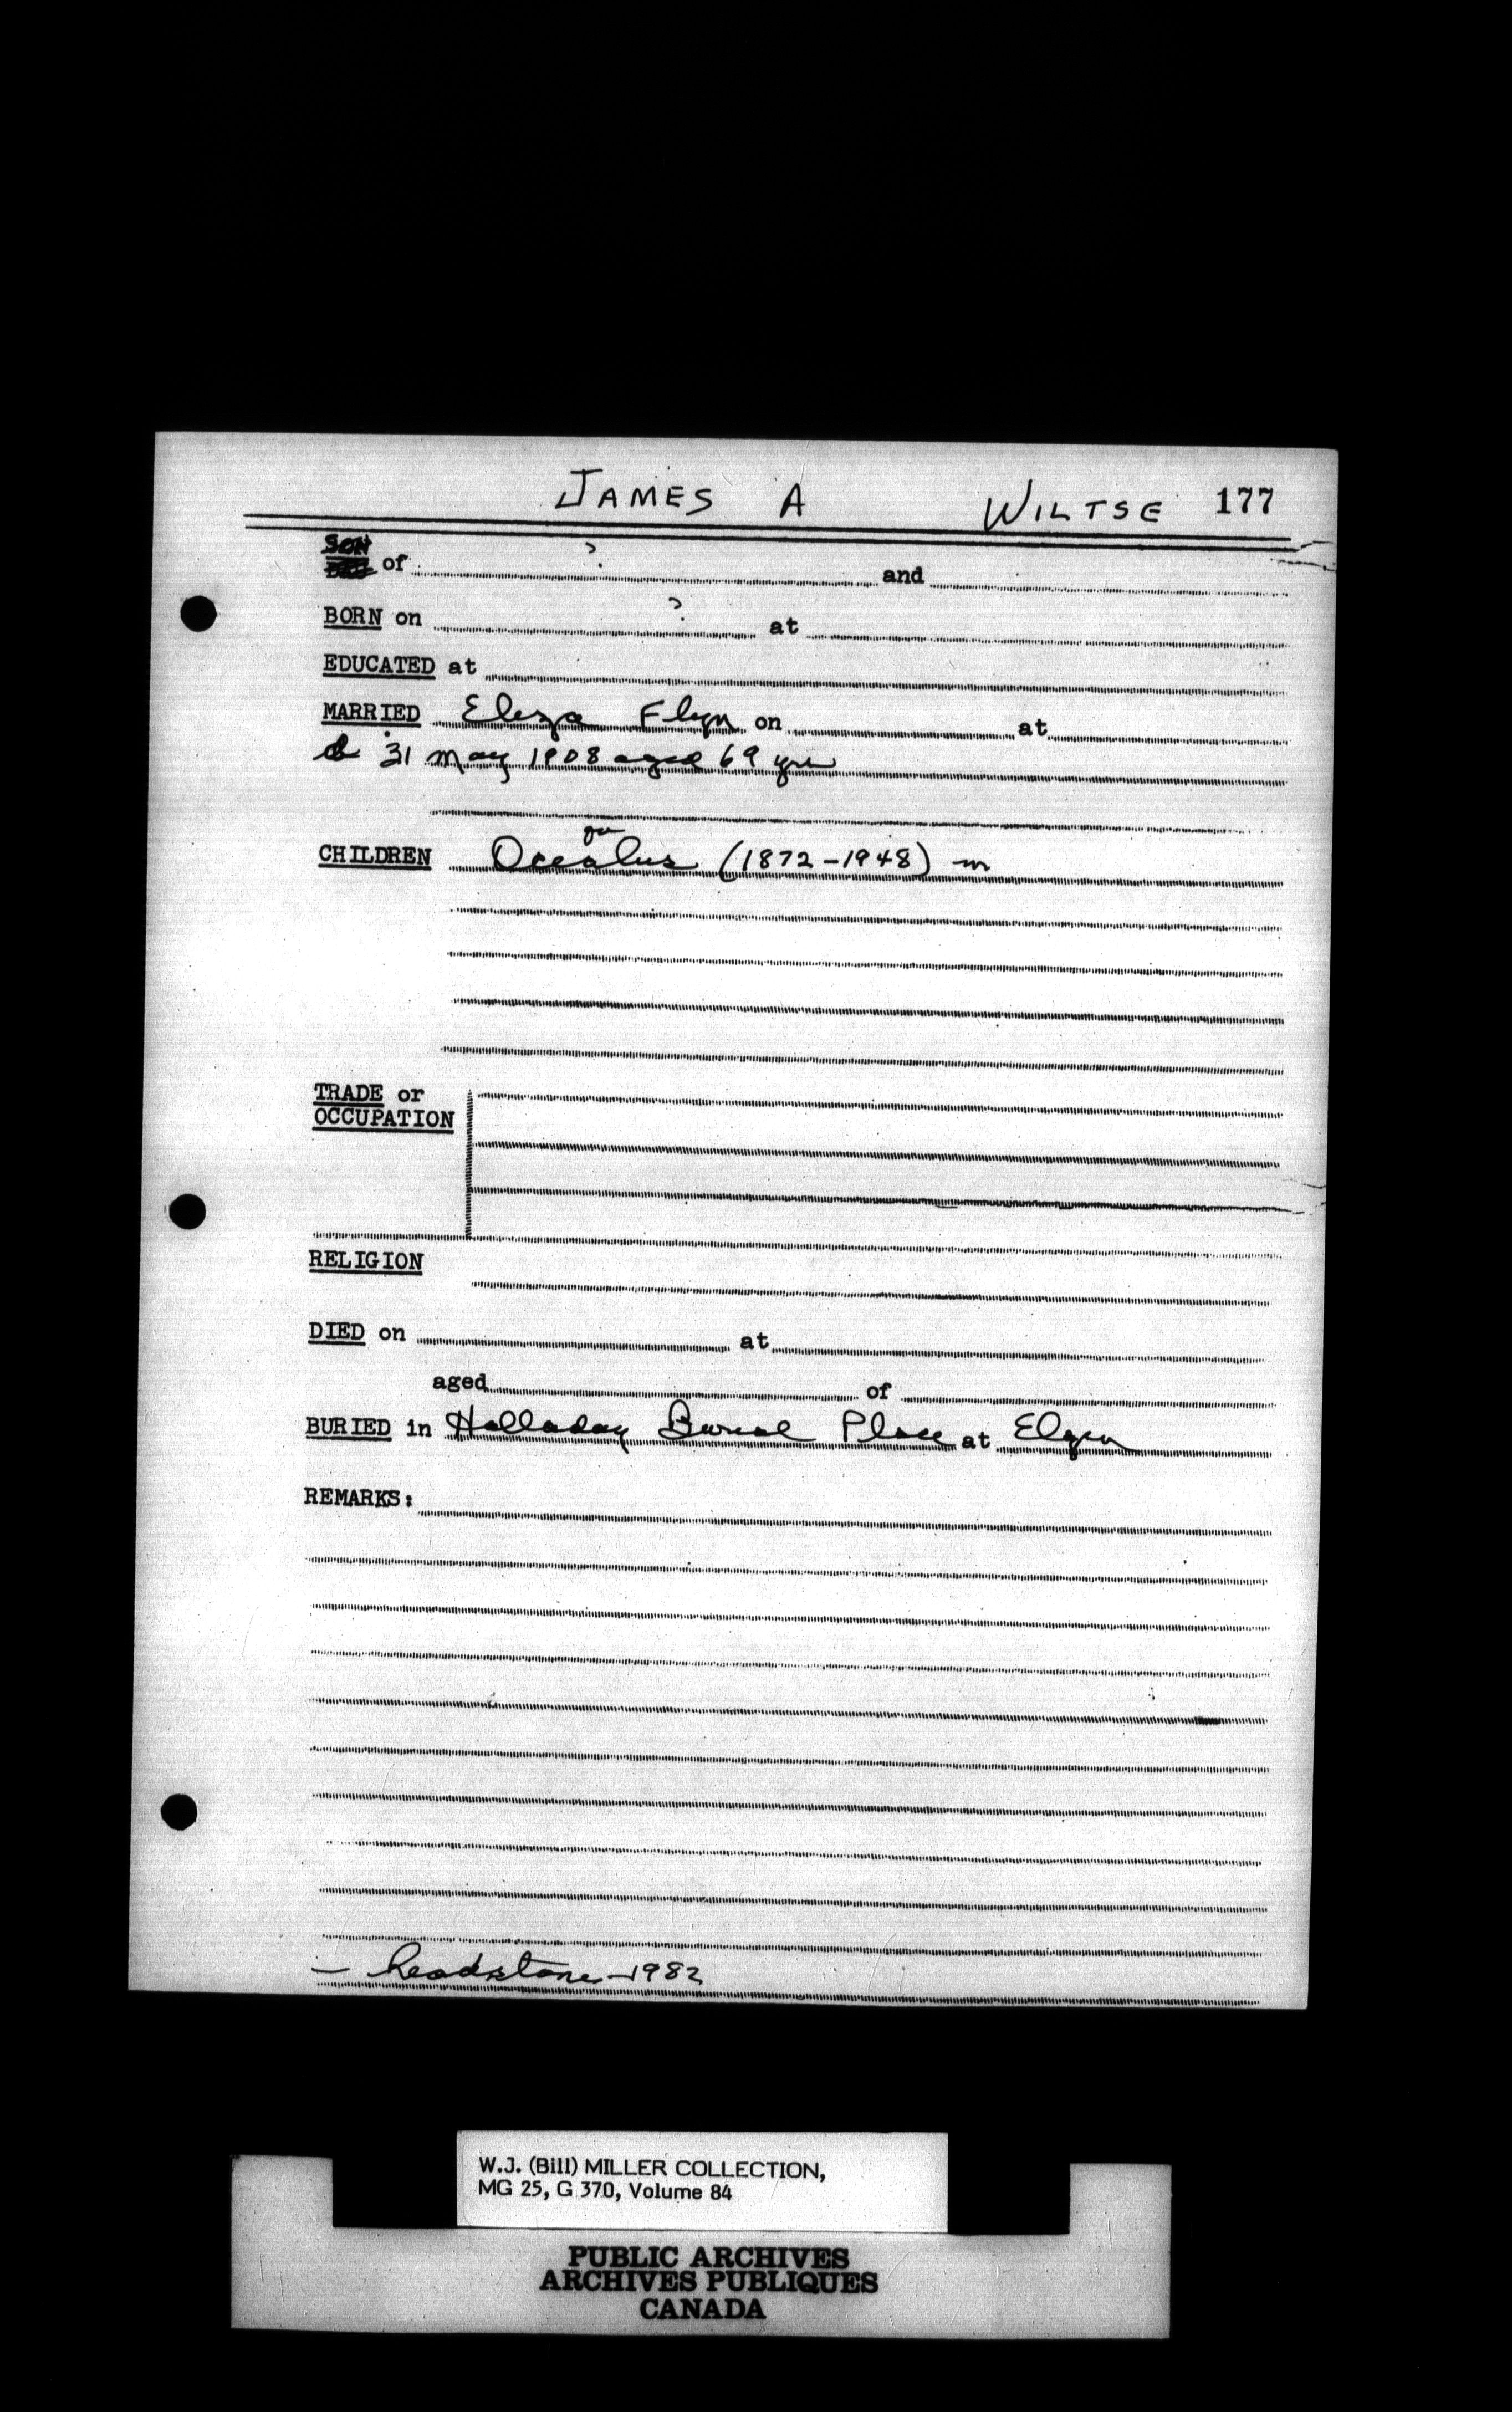 JAMES A WILTSE 177
SON of ? and
BORN on ? at
EDUCATED at
MARRIED Eliza Flyn on at
d 31 May 1908 aged 69 yrs
CHILDREN (1872-1948) m
TRADE or
OCCUPATION
RELIGION
DIED on at
aged of
BURIED in Halladay Burial Place at Elgin
REMARKS:
- headstone - 1982
W.J. (Bill) MILLER COLLECTION,
MG 25, G 370, Volume 84
PUBLIC ARCHIVES
ARCHIVES PUBLIQUES
CANADA